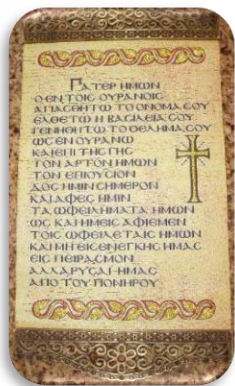 ΠΑΤΕΡ ΗΜΩΝ
Ο ΕΝ ΤΟΙC ΟΥΡΑΝΟΙC
ΑΓΙΑCΘΗΤΩ ΤΟ ΟΝΟΜΑ CΟΥ
ΕΛΘΕΤΩ Η ΒΑCΙΛΕΙΑ CΟΥ
ΓΕΝΝΗΘΗΤΩ ΤΟ ΘΕΛΗΜΑ CΟΥ
ΩC ΕΝ ΟΥΡΑΝΩ
ΚΑΙ ΕΠΙ ΤΗC ΓΗC
ΤΟΝ ΑΡΤΟΝ ΗΜΩΝ
ΤΟΝ ΕΠΙΟΥCΙΟΝ
ΔΟC ΗΜΙΝ CΗΜΕΡΟΝ
ΚΑΙ ΑΦΕC ΗΜΙΝ
ΤΑ ΩΦΕΙΛΗΜΑΤΑ ΗΜΩΝ
ΩC ΚΑΙ ΗΜΕΙC ΑΦΙΕΜΕΝ
ΤΟΙC ΩΦΕΙΛΕΤΑΙC ΗΜΩΝ
ΚΑΙ ΜΗ ΕΙCΕΝΕΓΚΗC ΗΜΑC
ΕΙC ΠΕΙΡΑCΜΟΝ
ΑΛΛΑ ΡΥCΑΙ ΗΜΑC
ΑΠΟ ΤΟΥ ΠΟΝΗΡΟΥ